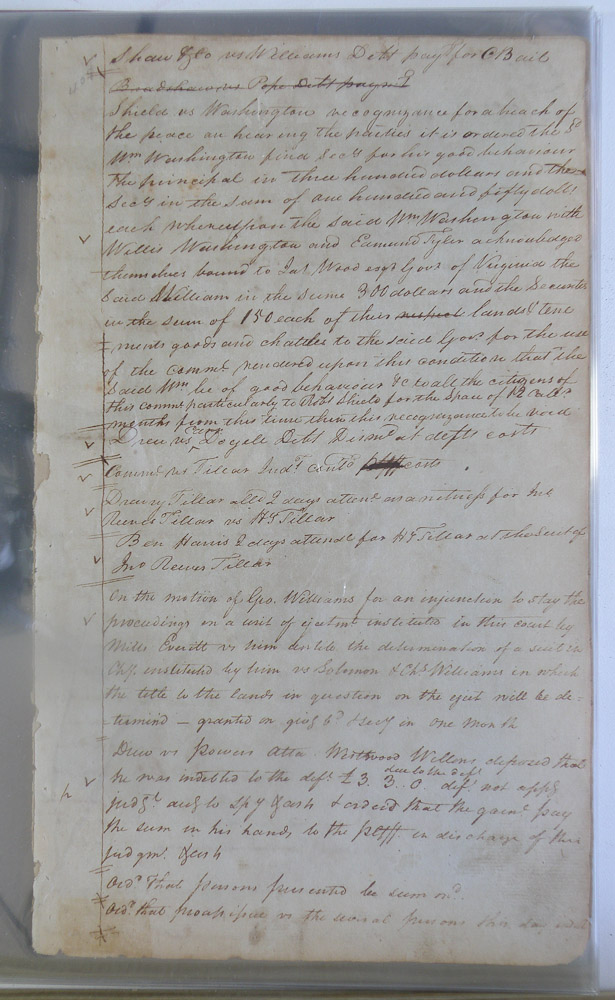 Shaw & Co vs Williams Debt pay't for C Bail
Bradshaw vs Pope Debt paym't
Shield vs Washington recognizance for a breach of
the peace on hearing the parties it is ordered the sd
Wm Washington find Secy for his good behaviour
the principal in three hundred dollars and the
Secy in the sum of one hundred and fifty dolls
each whereupon the said Wm Washington with
Willis Washington and Edmund Tyler acknowledged
themselves bound to Jas Wood esqr Govr of Virginia the
said William in the sume 300 dollars and the Securities
in the sum of 150 each of their respect lands & tene
=ments goods and chattles to the said Govr for the use
of the Commo rendered upon this condition that the
said Wm be of good behaviour &c to all the citizens of
this commo particularly to Robt Shield for the space of 12
months from this time then this recognizance to be void
Drew vs Doyell Debt Dismd at defts costs
Commo vs Tillar Judt costs
Drewry Tillar alld 2 days attence as a witness for Jno
Reeves Tillar vs H T Tillar
Ben Harris 2 days attence for H T Tillar at the Suit of
Jno Reeves Tillar
On the motion of Geo. Williams for an injunction to stay the
proceedings in a suit of ejectmt instituted in this court by
Mills Everitt vs him untill the determination of a suit in
Chy. instituted by him vs Solomon & Chs Williams in which
the title to the lands in question on the eject will be de=
termind — granted on givg bd & secy in one month
Drew vs Powers Atta. Wellons deposed that
he was indebted to the deft £3. 3. 0 deft not appg
due to the deft
judgt accg to spy & cash & ordered that the garnt pay
the sum in his hands to the ptff. in discharge of this
judgmt & cash
Ordd That persons presented be sumond
Ordd that process issue vs the several persons this day